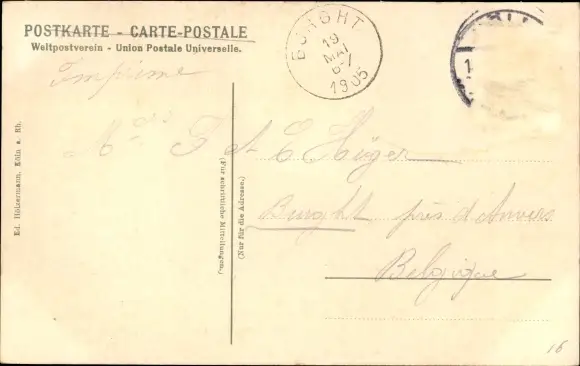 POSTKARTE - CARTE-POSTALE
Weltpostverein - Union Postale Universelle.
Imprimé
BURGHT
19
MAI
6-7
1905
E Hüger
Burght près d'Anvers
Belgique
(Für schriftliche Mitteilungen.)
(Nur für die Adresse.)
Ed. Hölzermann, Köln a. Rh.
16